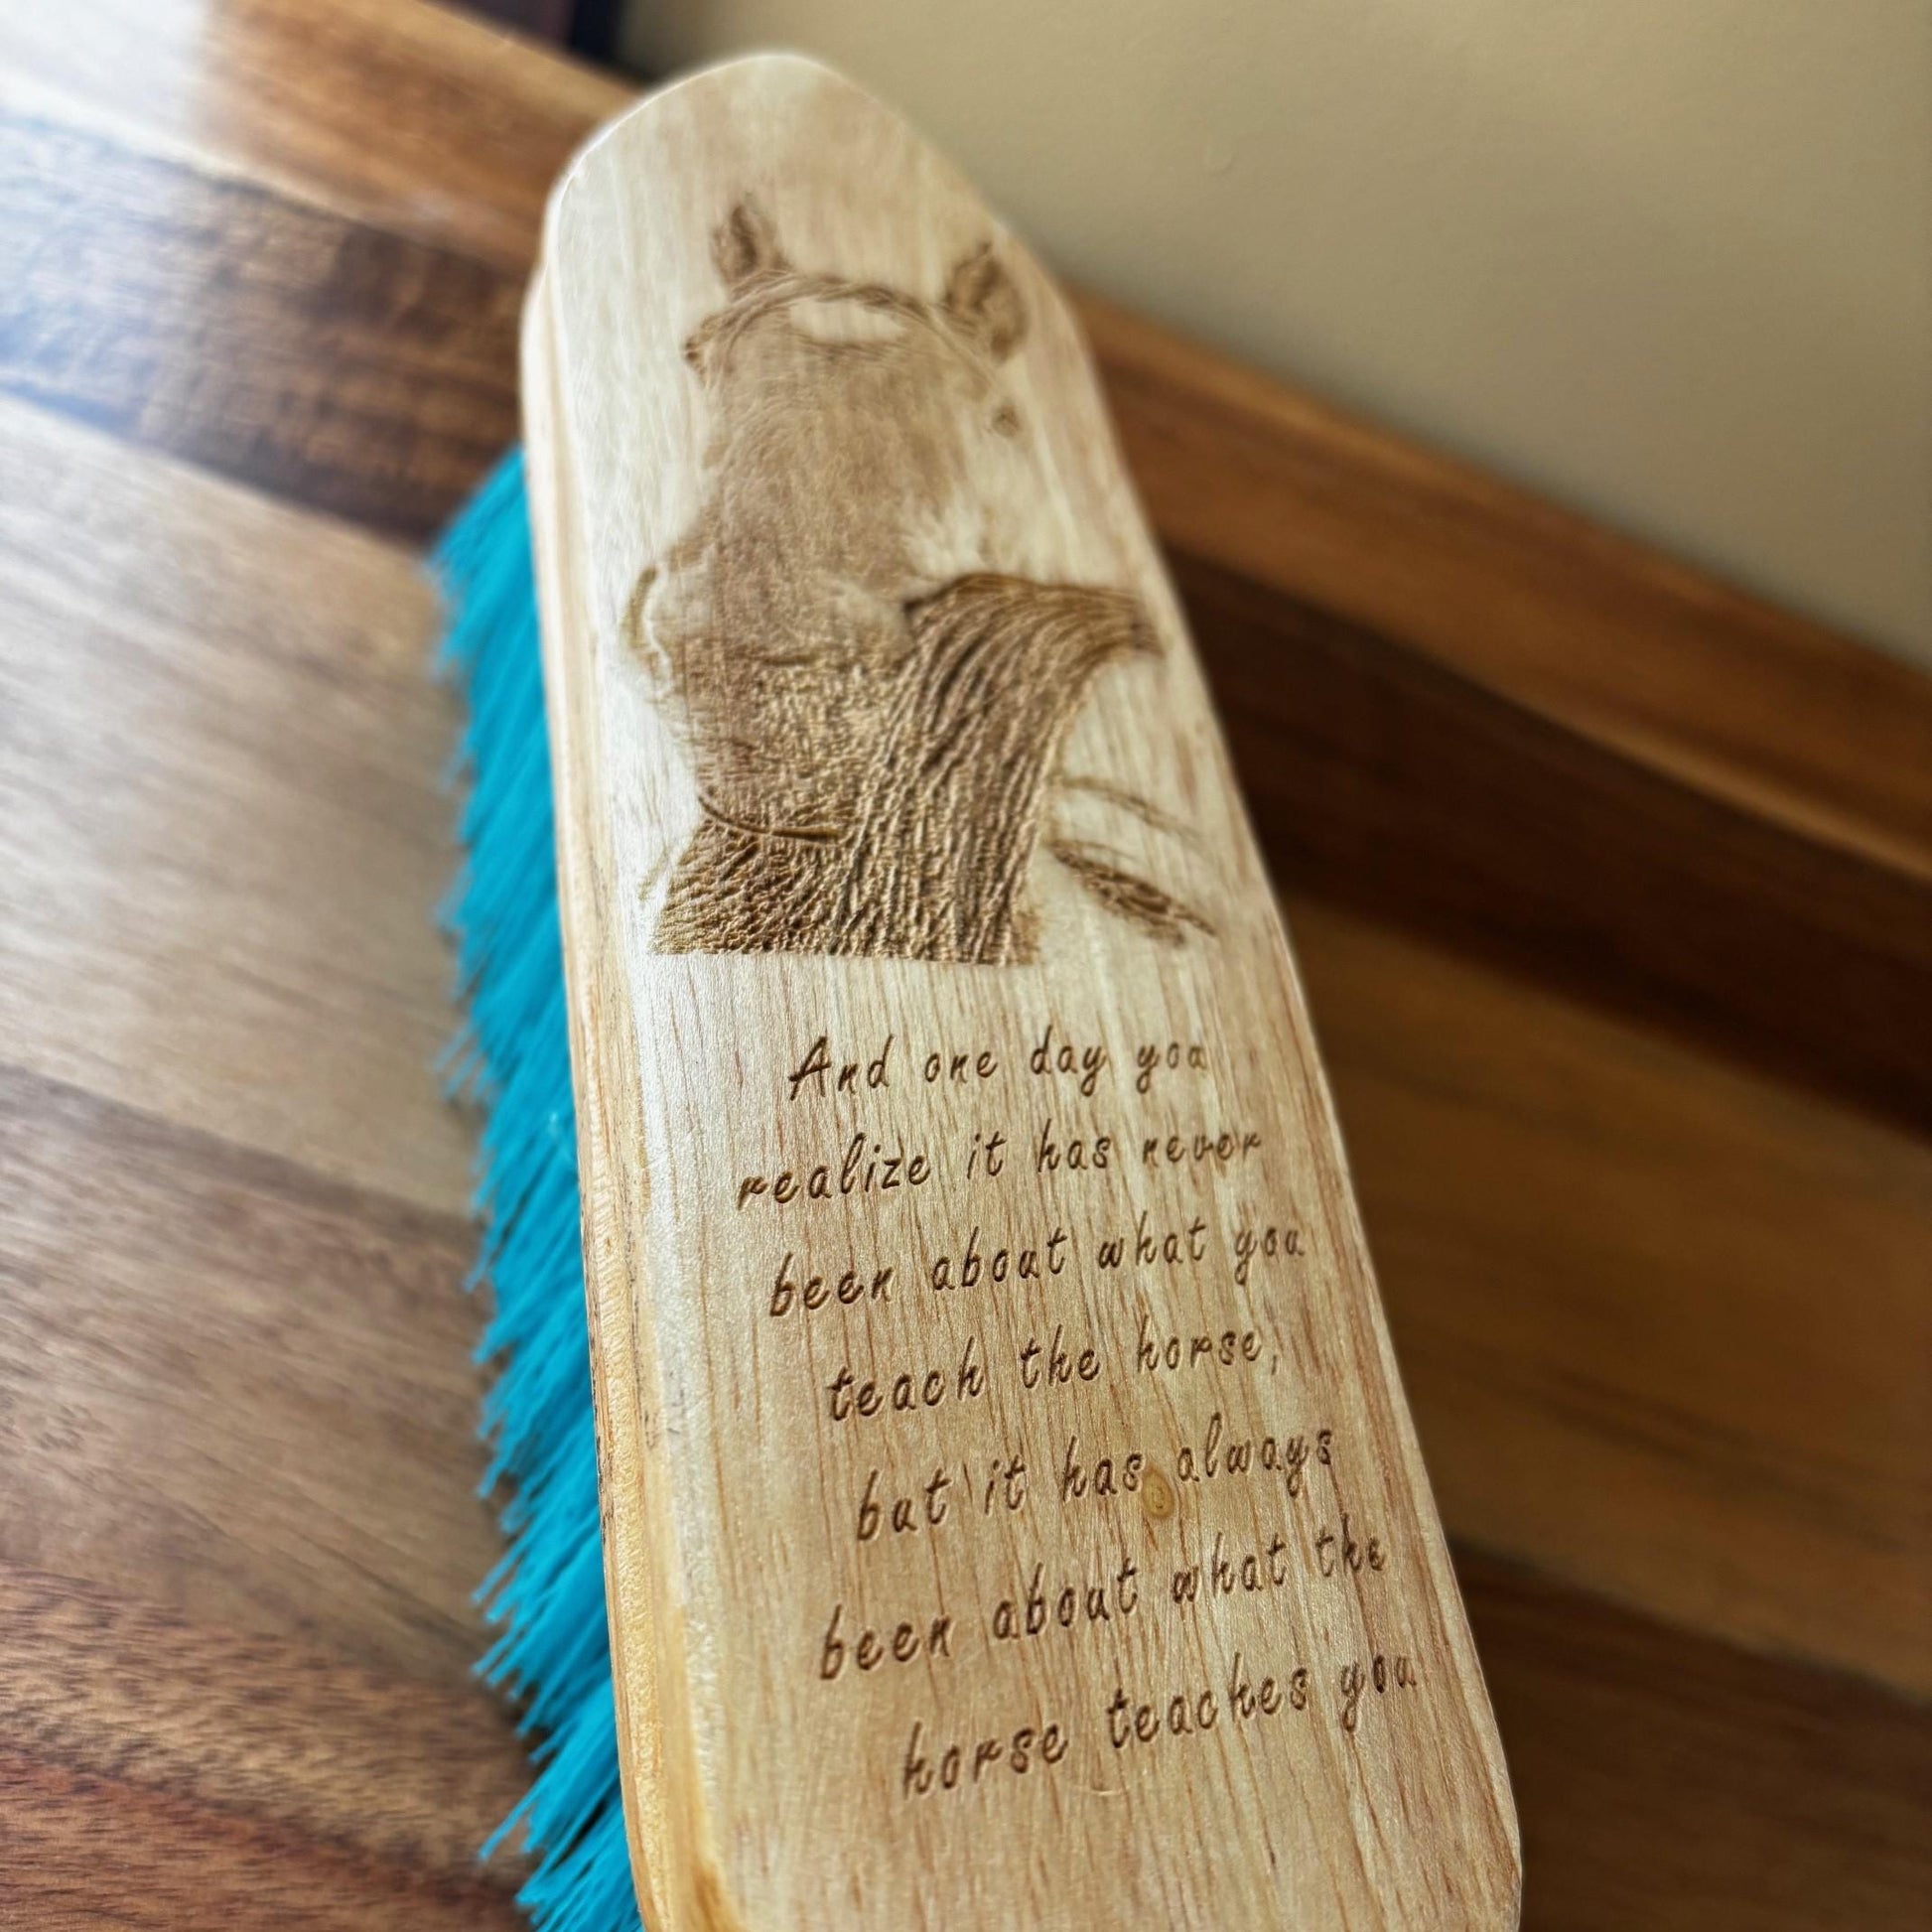 And one day you
realize it has never
been about what you
teach the horse,
but it has always
been about what the
horse teaches you